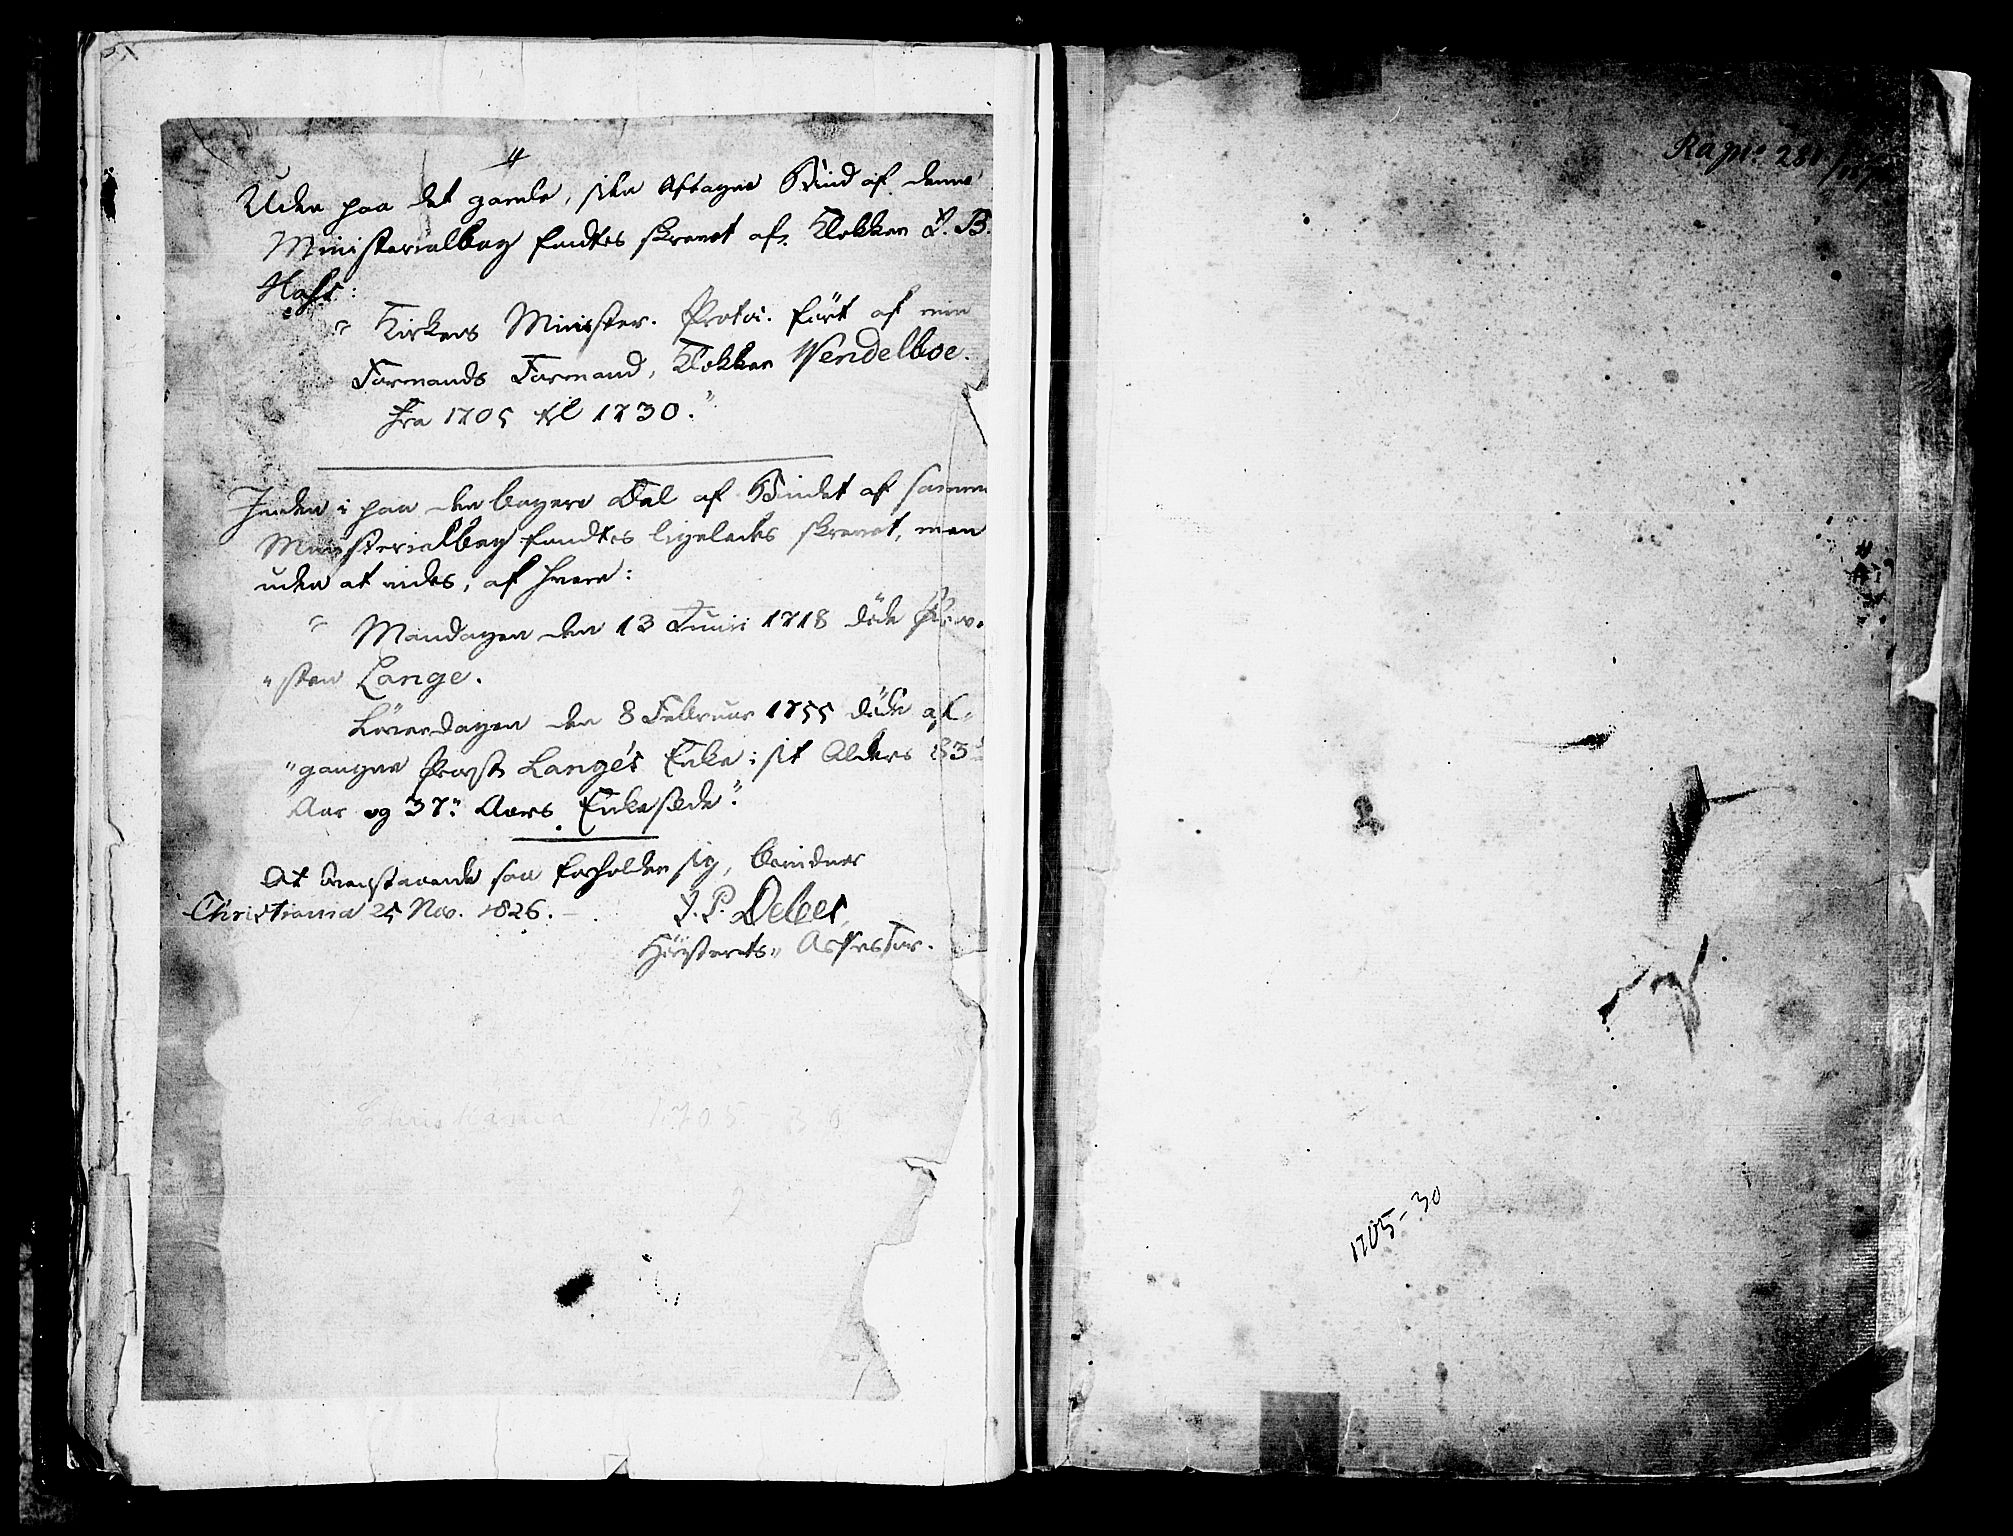 Uden paa det gamle, siden aftagne Bind af denne
Ministerialbog fandtes skrevet af Klokker J. B.
Hass:
"Kirkens Minister. Protoc. fört af min
Formands Formand, Klokker Wendelboe.
fra 1705 til 1730."
Inden i paa den bagere Deel af Bindet af samme
Ministerialbog fandtes ligeledes skrevet, men
uden at vides, af hvem:
"Mandagen den 13 Junii 1718 döde Prov-
"sten Lange.
Löverdagen den 8 Februar 1755 döde af-
"gangne Provst Lange's Enke i sit Alders 83
Aar og 37" Aars Enkesæde".
At ovenstaaende saa forholder sig, bevidner
Christiania 25 Nov. 1826.
J. P. Debes,
Höiesterets- Assessor.
Christiania 1705-30
1705-30